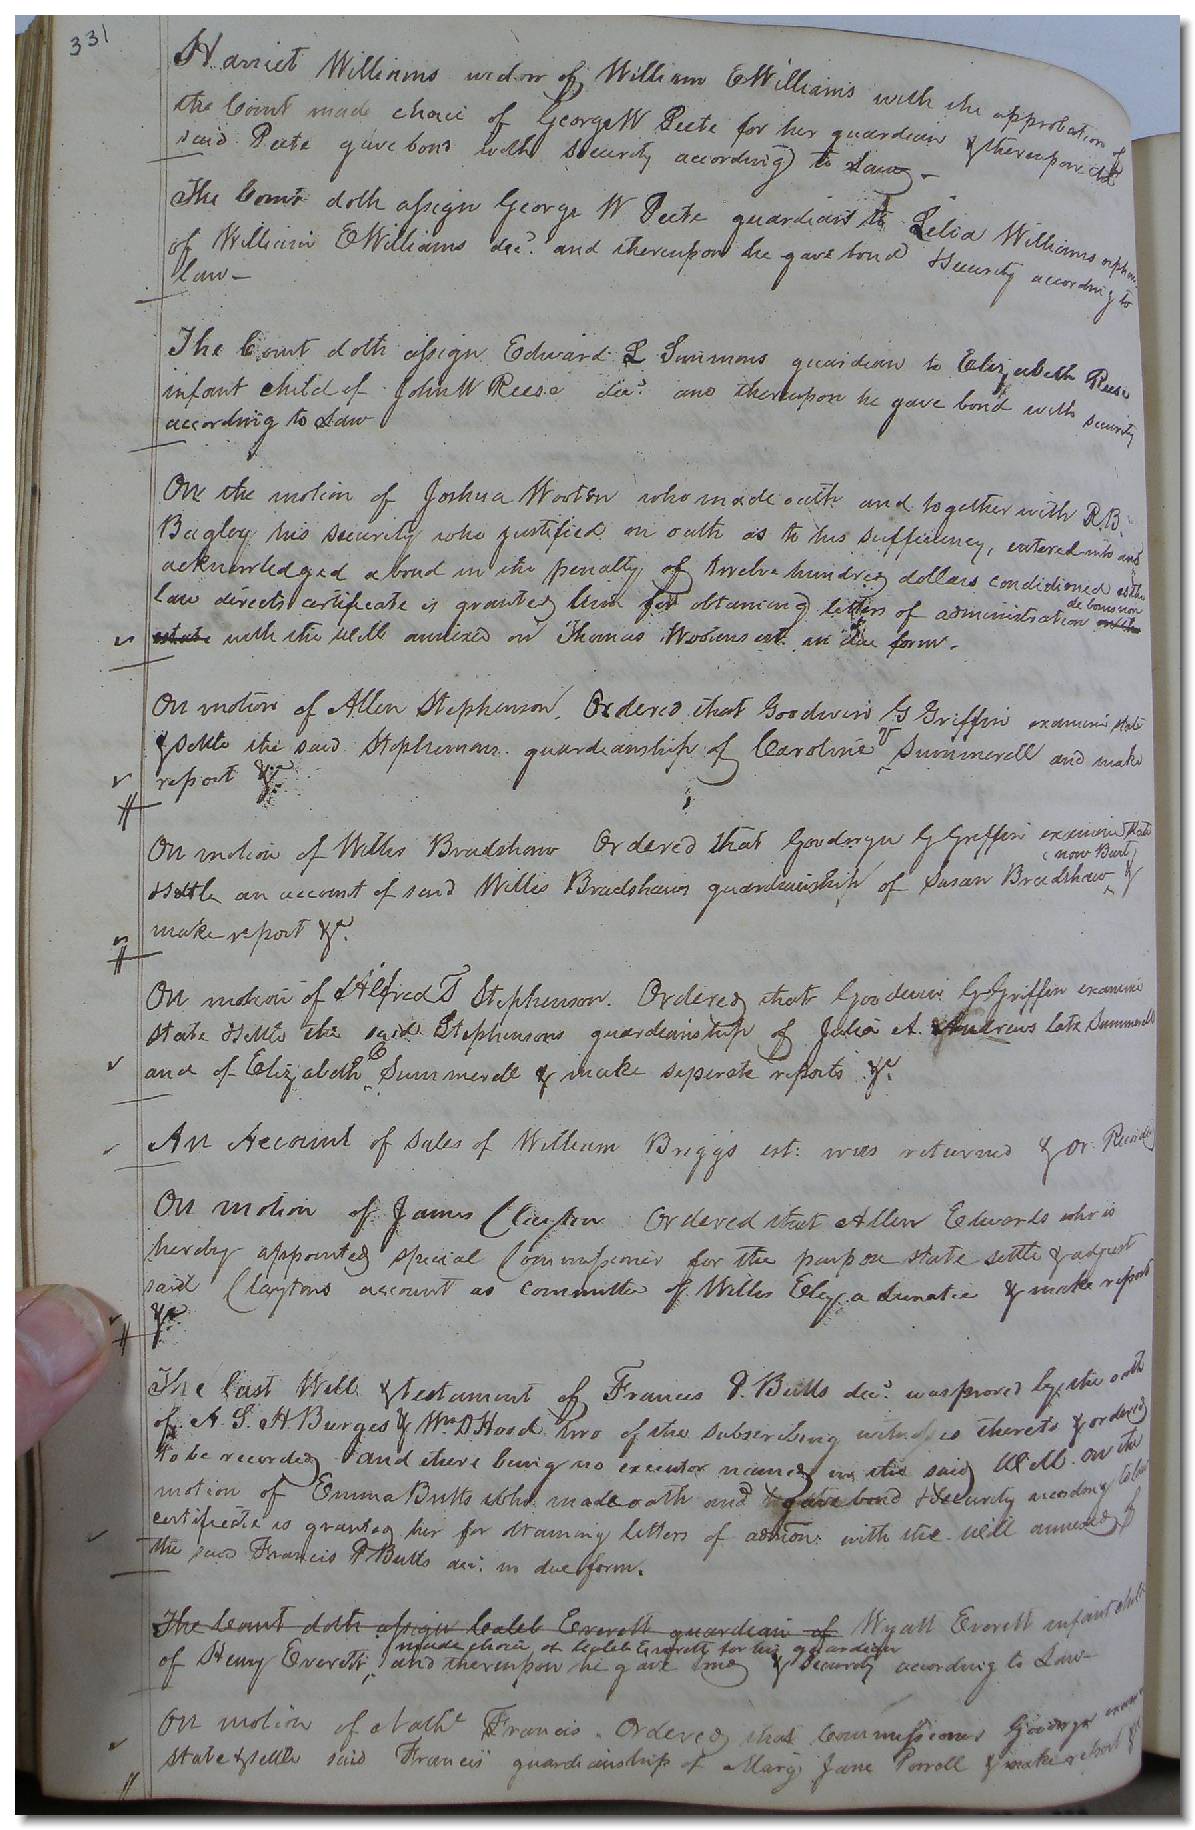 331
Harriet Williams widow of William E Williams with the approbation of
the Court made choice of George W Peete for her guardian & thereupon the
said Peete gave bond with security according to Law –
The Court doth assign George W Peete guardian to Lelia Williams orphan
of William E Williams dec.d and thereupon he gave bond & security according to
law –
The Court doth assign Edward L Simmons guardian to Elizabeth Reese
infant child of John W Reese dec.d and thereupon he gave bond with security
according to Law
On the motion of Joshua Wooten who made oath and together with R B
Bagley his security who justified on oath as to his sufficiency, entered into and
acknowledged a bond in the penalty of twelve hundred dollars conditioned as the
law directs certificate is granted him for obtaining letters of administration de bonis non on the
estate with the will annexed on Thomas Wootens est. in due form.
On motion of Allen Stephenson, Ordered that Goodwin G Griffin examine state
& settle the said Stephensons guardianship of Caroline V Summerell and make
report &c.
On motion of Willis Bradshaw Ordered that Goodwyn G Griffin examine state
& settle an account of said Willis Bradshaws guardianship of Susan Bradshaw (now Burt) &
make report &c.
On motion of Alfred T Stephenson. Ordered that Goodwin G Griffin examine
state & settle the said Stephensons guardianship of Julia A. Andrews late Summerell
and of Elizabeth E Summerell & make seperate reports &c.
An Account of sales of William Briggs est: was returned & or. Recorded
On motion of James Clayton Ordered that Allen Edwards who is
hereby appointed special Commissioner for the purpose state settle & adjust
said Claytons account as committee of Willis Eley a Lunatic & make report
&c.
The last Will & testament of Francis P. Butts dec.d was proved by the oath
of A. S. H Burges & Wm D Hood two of the subscribing witnesses thereto & ordered
to be recorded and there being no executor named in the said Will. on the
motion of Emma Butts who made oath and gave bond & security according to law
certificate is granted her for obtaining letters of admon: with the will annexed of
the said Francis P Butts dec.d in due form.
The Court doth assign Caleb Everett guardian of Wyatt Everett infant child
of Henry Everett, made choice of Caleb Everett for his guardian and thereupon he gave bond & security according to Law –
On motion of Nath.l Francis. Ordered that Commissioner Goodwyn examine
state & settle said Francis' guardianship of Mary Jane Porrell & make report &c